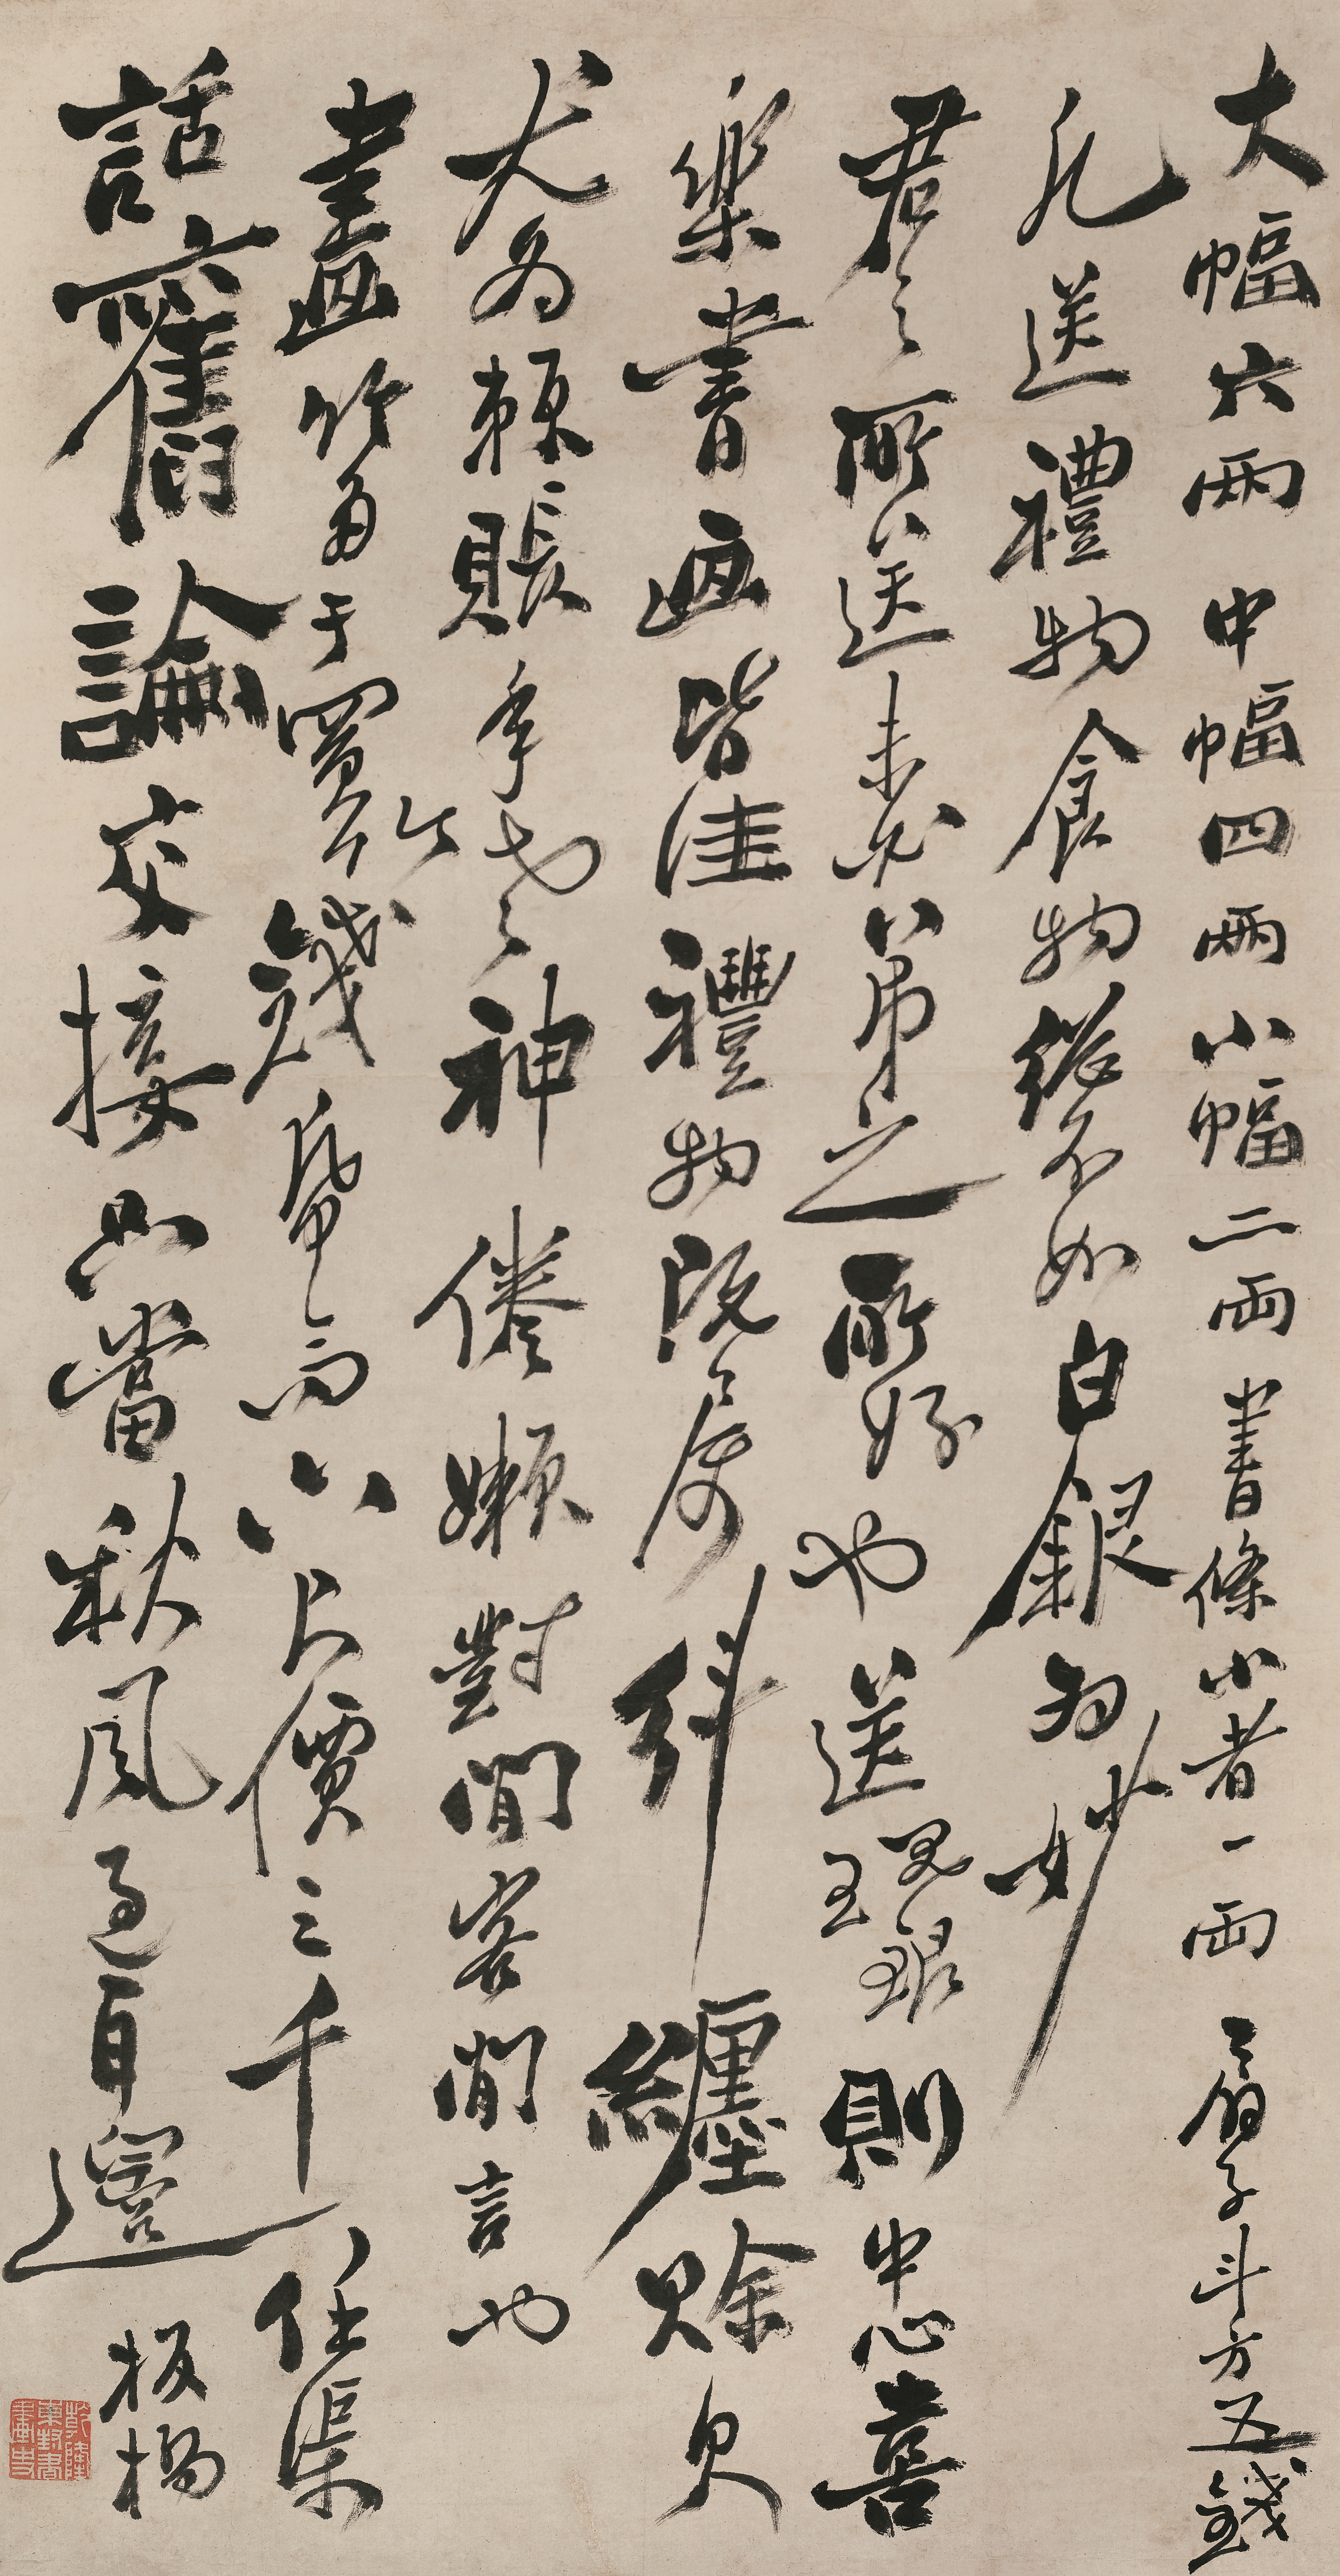 大幅六兩中幅四兩小幅二兩書條小者一兩扇子斗方五錢
凡送禮物食物總不如白銀为妙
君之所送未必弟之所好也送現銀則中心喜
樂書画皆佳禮物既屬糾纏賒欠
尤为賴賬年老神倦嬾對閒客閒言也
畫竹多于買竹錢帋高六尺價三千任渠
話舊論交接只當秋風過耳邊板橋
乾隆東封書畫史